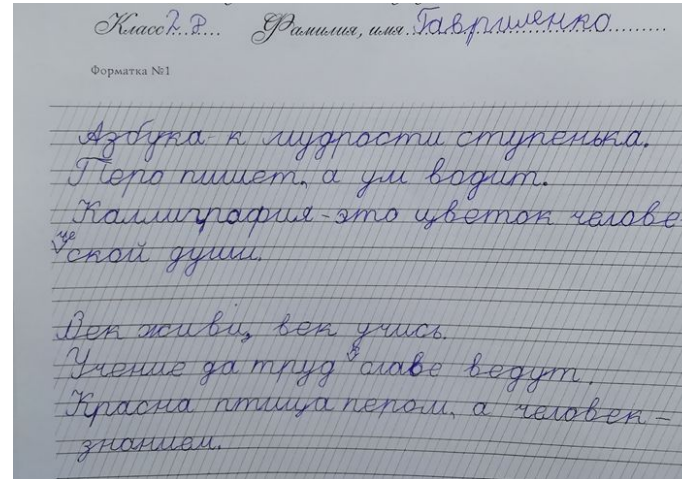 Класс 2 В Фамилия, имя Гавриленко
Форматка №1
Азбука - к мудрости ступенька.
Перо пишет, а ум водит.
Каллиграфия - это цветок челове
ческой души.
Век живи, век учись.
Учение да труд к славе ведут.
Красна птица пером, а человек -
знанием.